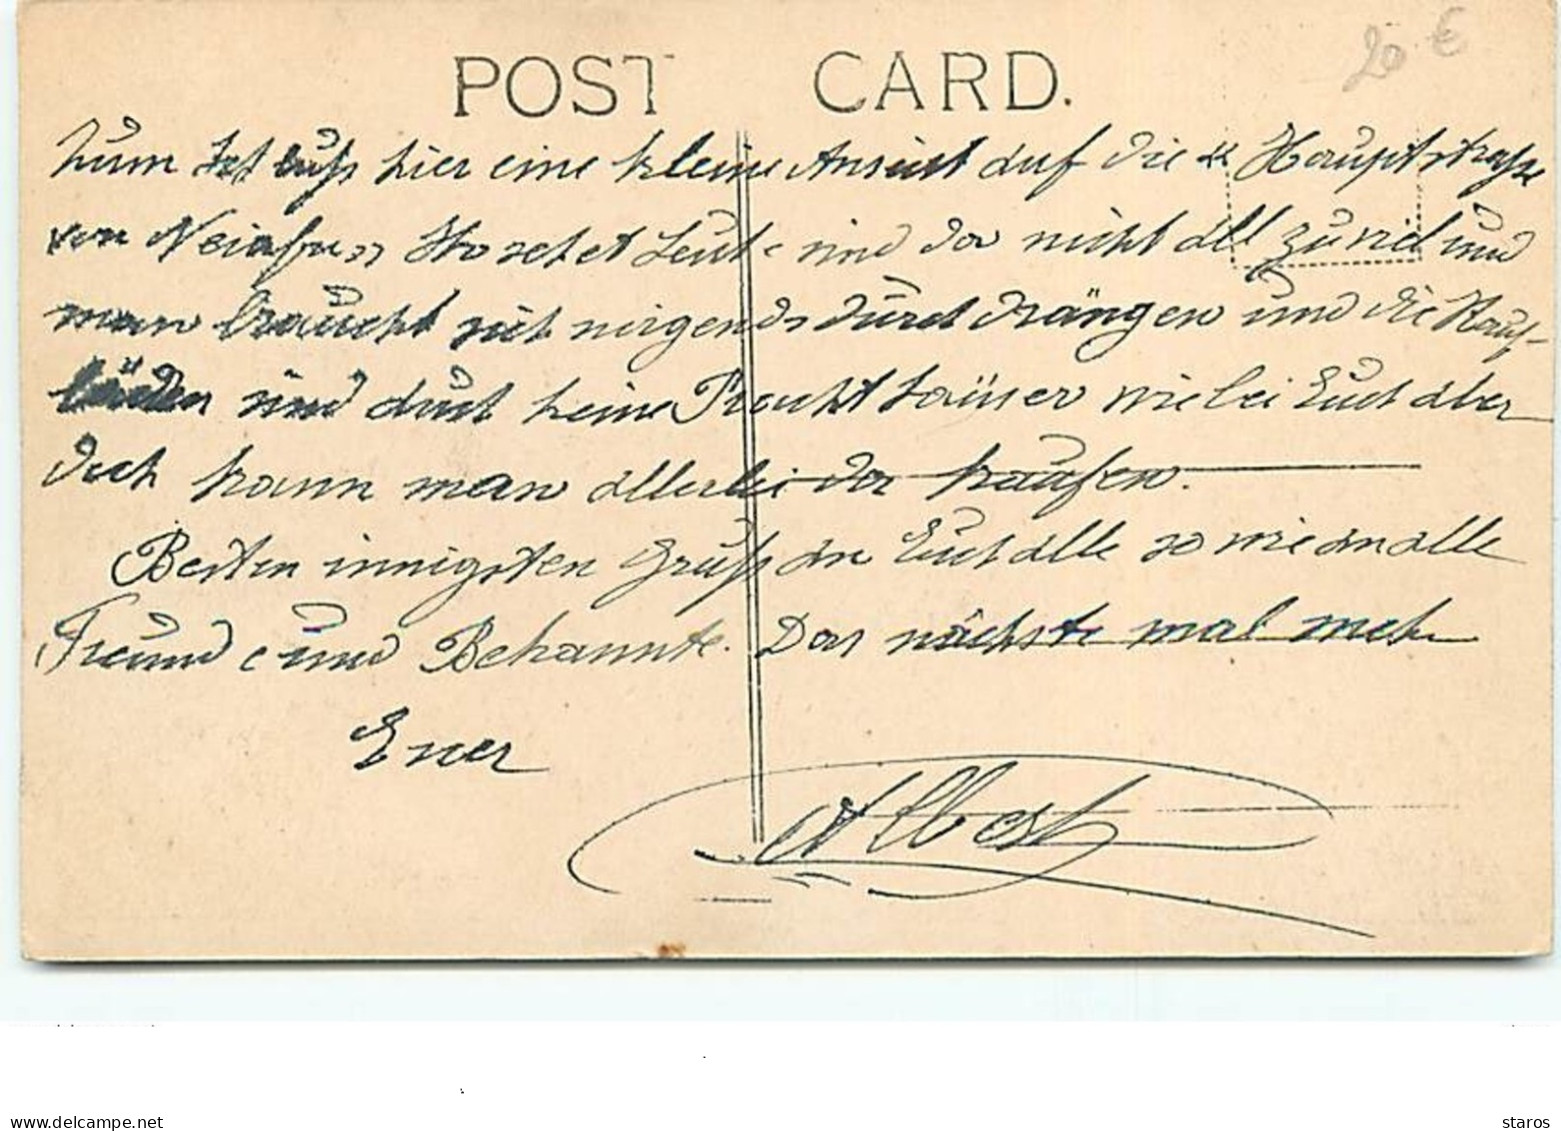 20 €
POST CARD.
Zum hier eine kleine Ansicht auf die „Hauptstraße
von Neiafu" Leute sind da nicht all zu viel und
man braucht sich nirgends durch drängen und die Kauf-
läden sind auch keine Prachthäuser wie bei Euch aber
doch kann man allerlei da kaufen.
Besten innigsten Gruß an Euch alle so wie an alle
Freunde und Bekannte. Das nächste mal mehr
Euer
Albert
delcampe.net
staros